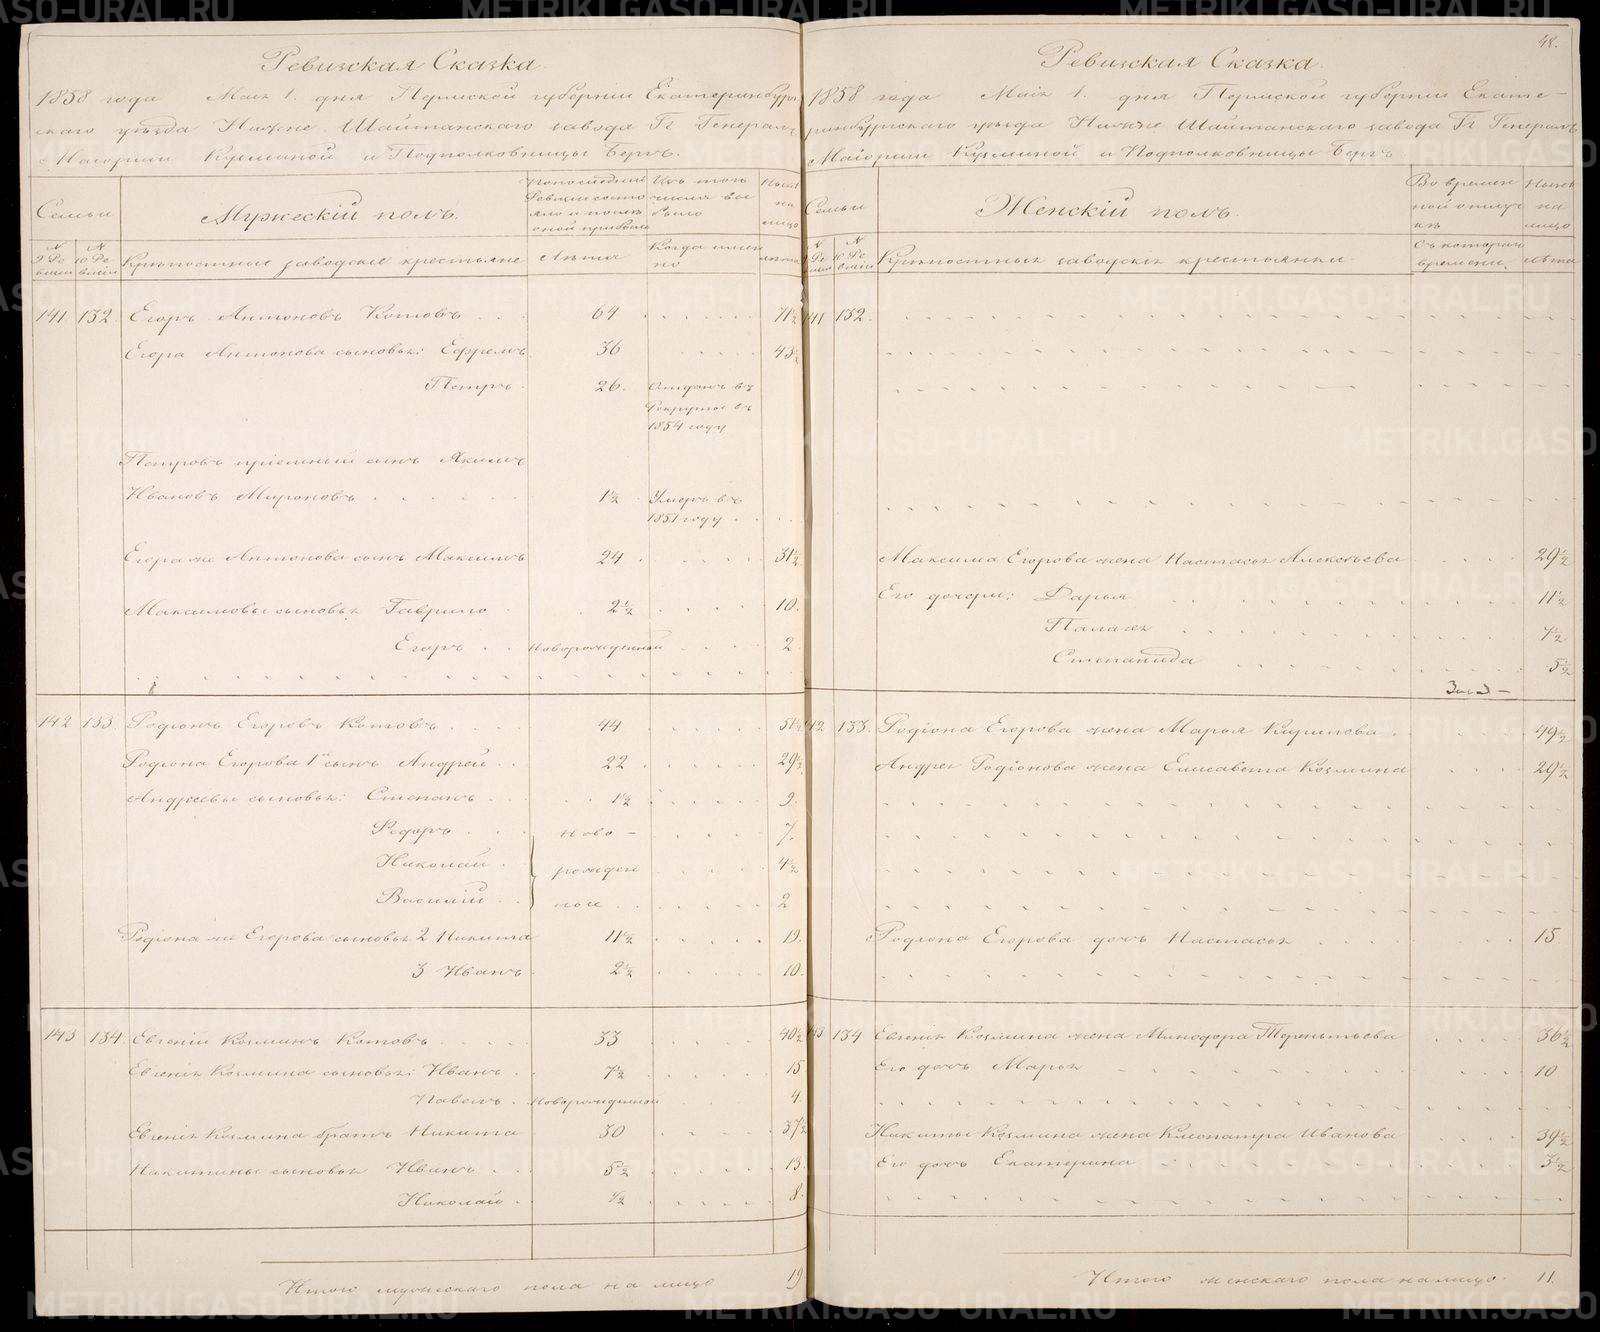 Ревизская Сказка.
1858 года Маія 1. дня Пермской губерніи Екатеринбург-
скаго уѣзда Нижне Шайтанскаго завода Гг Генералъ
Маіорши Кузминой и Подполковницы Бергъ.
Семьи
Мужескій полъ.
По последней Ревизии состо яло и после оной прибыло
Изъ того числа вы было
Ныне на лицо
№ 9 Ре визіи
№ 10 Ре визіи
Крѣпостные заводскіе крестьяне
Лѣта
Когда имен но
лѣта
141 132. Егоръ Антоновъ Котовъ 64 71½
Егора Антонова сыновья: Ефремъ 36 43½
Петръ 26. Отданъ въ
Рекруты въ
1854 году
Петровъ пріемный сынъ Якимъ
Ивановъ Мироновъ 1½ Умеръ въ
1851 году
Егора же Антонова сынъ Максимъ 24 31½
Максимовы сыновья Гаврило 2½ 10.
Егоръ Новорожденной 2
142 133. Родіонъ Егоровъ Котовъ 44 51½
Родіона Егорова 1й сынъ Андрей 22 29½
Андреевы сыновья: Степанъ 1½ 9.
Федоръ ново- 7.
Николай рожден 4½
Василій ные 2
Родіона же Егорова сыновья 2 Никита 11½ 19.
3 Иванъ 2½ 10.
143 134 Евгеній Козминъ Котовъ 33 40½
Евгенія Козмина сыновья: Иванъ 7½ 15
Павелъ Новорожденной 4.
Евгенія Козмина братъ Никита 30 37½
Никитины сыновья Иванъ 5½ 13.
Николай ½ 8.
Итого мужескаго пола на лицо 19
48.
Ревизская Сказка.
1858 года Маія 1. дня Пермской губерніи Екате-
ринбургскаго уѣзда Нижне Шайтанскаго завода Гг Генералъ
Маіорши Кузминой и Подполковницы Бергъ
Семьи
Женскій полъ.
Во времен ной отлуч кѣ
Ныне на лицо
№ 9 Ре визіи
№ 10 Ре визіи
Крѣпостныя заводскія крестьянки
Съ котораго времени.
лѣта
141 132.
Максима Егорова жена Настасья Алексѣева 29½
Его дочери: Дарья 11½
Палагея 7½
Степанида 5½
142 133. Родіона Егорова жена Марья Кирилова 49½
Андрея Родіонова жена Елисавета Козмина 29½
Родіона Егорова дочь Настасья 15
143 134 Евгенія Козмина жена Минодора Терентьева 36½
Его дочь Марья 10
Никиты Козмина жена Клеопатра Иванова 39½
Его дочь Екатерина 3½
Итого женскаго пола на лицо. 11.
METRIKI.GASO-URAL.RU